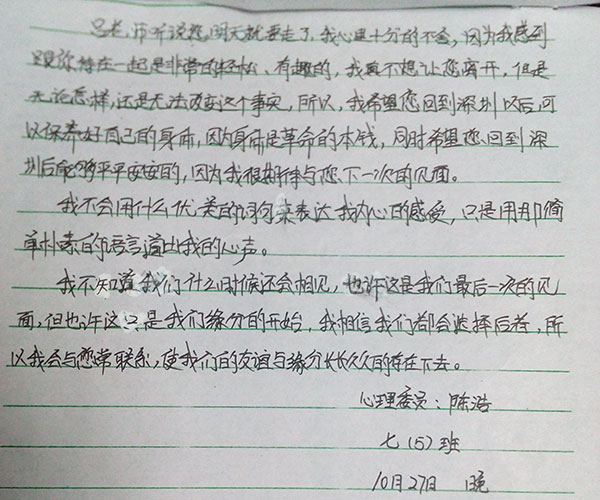 吕老师听说您明天就要走了，我心里十分的不舍，因为我感到
跟你待在一起是非常的轻松、有趣的，我真不想让您离开，但是
无论怎样，还是无法改变这个事实，所以，我希望您回到深圳以后，可
以保养好自己的身体，因为身体是革命的本钱，同时希望您回到深
圳后能够平平安安的，因为我很期待与您下一次的见面。
我不会用什么优美的词句来表达我内心的感受，只是用那简
单朴素的语言道出我的心声。
我不知道我们什么时候还会相见，也许这是我们最后一次的见
面，但也许这只是我们缘分的开始，我相信我们都会选择后者，所
以我会与您常联系，使我们的友谊与缘分长长久久的存在下去。
心理委员：陈浩
七（5）班
10月27日 晚